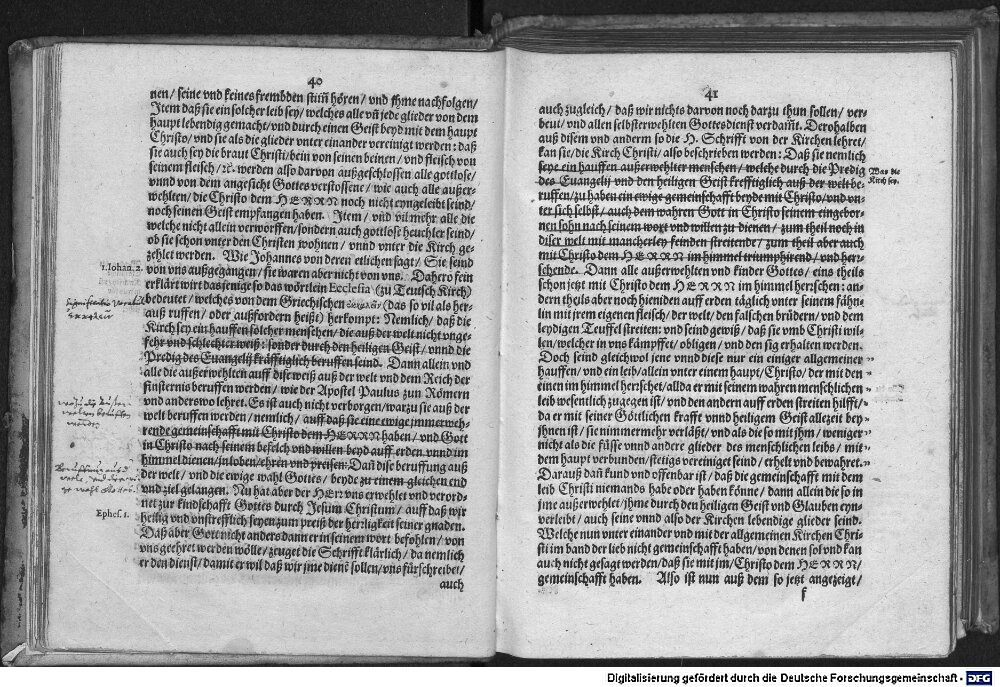 40
nen/ seine vnd keines frembden stim̃ hören/ vnd jhme nachfolgen/
Item daß sie ein solcher leib sey/ welches alle vñ jede glieder von dem
haupt lebendig gemacht/ vnd durch einen Geist beyd mit dem haupt
Christo/ vnd sie als die glieder vnter einander vereinigt werden: daß
sie auch sey die braut Christi/ bein von seinen beinen/ vnd fleisch von
seinem fleisch/ ꝛc. werden also darvon außgeschlossen alle gottlose/
vnnd von dem angesicht Gottes verstossene/ wie auch alle außer-
wehlten/ die Christo dem HERRN noch nicht eyngeleibt seind/
noch seinen Geist empfangen haben. Item/ vnd vil mehr alle die
welche nicht allein verworffen/ sondern auch gottlose heuchler seind/
ob sie schon vnter den Christen wohnen/ vnnd vnter die Kirch ge-
zehlet werden. Wie Johannes von deren etlichen sagt/ Sie seind
1. Iohan. 2. von vns außgegangen/ sie waren aber nicht von vns. Dahero fein
erklärt wirt das jenige so das wörtlein Ecclesia (zu Teutsch Kirch)
bedeutet/ welches von dem Griechischen (das so vil als her-
auß ruffen/ oder außfordern heißt) herkompt: Nemlich/ daß die
Kirch sey ein hauffen solcher menschen/ die auß der welt nicht vnge-
fehr vnd schlechter weiß: sonder durch den heiligen Geist/ vnnd die
Predig des Euangelij kräfftiglich beruffen seind. Dann allein vnd
alle die außerwehlten auff dise weiß auß der welt vnd dem Reich der
finsternis beruffen werden/ wie der Apostel Paulus zun Römern
vnd anderswo lehret. Es ist auch nicht verborgen/ warzu sie auß der
welt beruffen werden/ nemlich/ auff daß sie eine ewige immerweh-
rende gemeinschafft mit Christo dem HERRN haben/ vnd Gott
in Christo nach seinem befelch vnd willen beyd auff erden vnnd im
himmel dienen/ jn loben/ ehren vnd preisen. Dañ dise beruffung auß
der welt/ vnd die ewige wahl Gottes/ beyde zu einem gleichen end
vnd ziel gelangen. Nu hat aber der HErr vns erwehlet vnd verord-
net zur kindschafft Gottes durch Jesum Christum/ auff daß wir
Ephes. 1. heilig vnd vnstrefflich seyen zum preiß der herrligkeit seiner gnaden.
Daß aber Gott nicht anders dann er in seinem wort befohlen/ von
vns geehret werden wölle/ zeuget die Schrifft klärlich/ da nemlich
er den dienst/ damit er wil daß wir jme dienē sollen/ vns fürschreibet/
auch
41
auch zugleich/ daß wir nichts darvon noch darzu thun sollen/ ver-
beut/ vnd allen selbsterwehlten Gottesdienst verdam̃t. Derohalben
auß disem vnd anderm so die H. Schrifft von der Kirchen lehret/
kan sie/ die Kirch Christi/ also beschrieben werden: Daß sie nemlich
seye ein hauffen außerwehlter menschen/ welche durch die Predig
Was die
Kirch sey.
des Euangelij vnd den heiligen Geist krefftiglich auß der welt be-
ruffen/ zu haben ein ewige gemeinschafft beyde mit Christo/ vnd vn-
ter sich selbst/ auch dem wahren Gott in Christo seinem eingebor-
nen sohn nach seinem wort vnd willen zu dienen/ zum theil noch in
diser welt mit mancherley feinden streitende/ zum theil aber auch
mit Christo dem HERRN im himmel triumphirend/ vnd herr-
schende. Dann alle außerwehlten vnd kinder Gottes/ eins theils
schon jetzt mit Christo dem HERRN im himmel herrschen: an-
dern theils aber noch hieniden auff erden täglich vnter seinem fähn-
lin mit jrem eigenen fleisch/ der welt/ den falschen brüdern/ vnd dem
leydigen Teuffel streiten: vnd seind gewiß/ daß sie vmb Christi wil-
len/ welcher in vns kämpffet/ obligen/ vnd den sig erhalten werden.
Doch seind gleichwol jene vnnd diese nur ein einiger allgemeiner
hauffen/ vnd ein leib/ allein vnter einem haupt/ Christo/ der mit den
einen im himmel herrschet/ allda er mit seinem wahren menschlichen
leib wesentlich zugegen ist/ vnd den andern auff erden streiten hilfft/
da er mit seiner Göttlichen krafft vnnd heiligem Geist allezeit bey
jhnen ist/ sie nimmermehr verläßt/ vnd als die so mit jhm/ weniger
nicht als die füsse vnnd andere glieder des menschlichen leibs/ mit
dem haupt verbunden/ stetigs vereiniget seind/ erhelt vnd bewahret.
Darauß dañ kund vnd offenbar ist/ daß die gemeinschafft mit dem
leib Christi niemands habe oder haben könne/ dann allein die so in
jme außerwehlet/ jhme durch den heiligen Geist vnd Glauben eyn-
verleibt/ auch seine vnnd also der Kirchen lebendige glieder seind.
Welche nun vnter einander vnd mit der allgemeinen Kirchen Chri-
sti im band der lieb nicht gemeinschafft haben/ von denen sol vnd kan
auch nicht gesagt werden/ daß sie mit jm/ Christo dem HERRN/
gemeinschafft haben. Also ist nun auß dem so jetzt angezeigt/
f
Digitalisierung gefördert durch die Deutsche Forschungsgemeinschaft - DFG